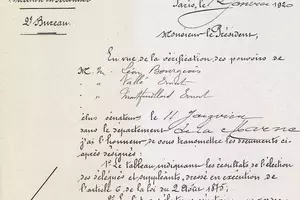 2e Bureau.
Paris, le Janvier 1920
Monsieur le Président,
En vue de la vérification des pouvoirs de
M. M. Léon Bourgeois
" Vallé Ernest
" Montfeuillard Ernest
élus sénateurs le 11 Janvier
dans le département de la Marne
j'ai l'honneur de vous transmettre les documents ci-
après désignés:
1° Le tableau indiquant les résultats de l'élection
des délégués et suppléants, dressé en exécution de
l'article 6 de la loi du 2 Août 1875;